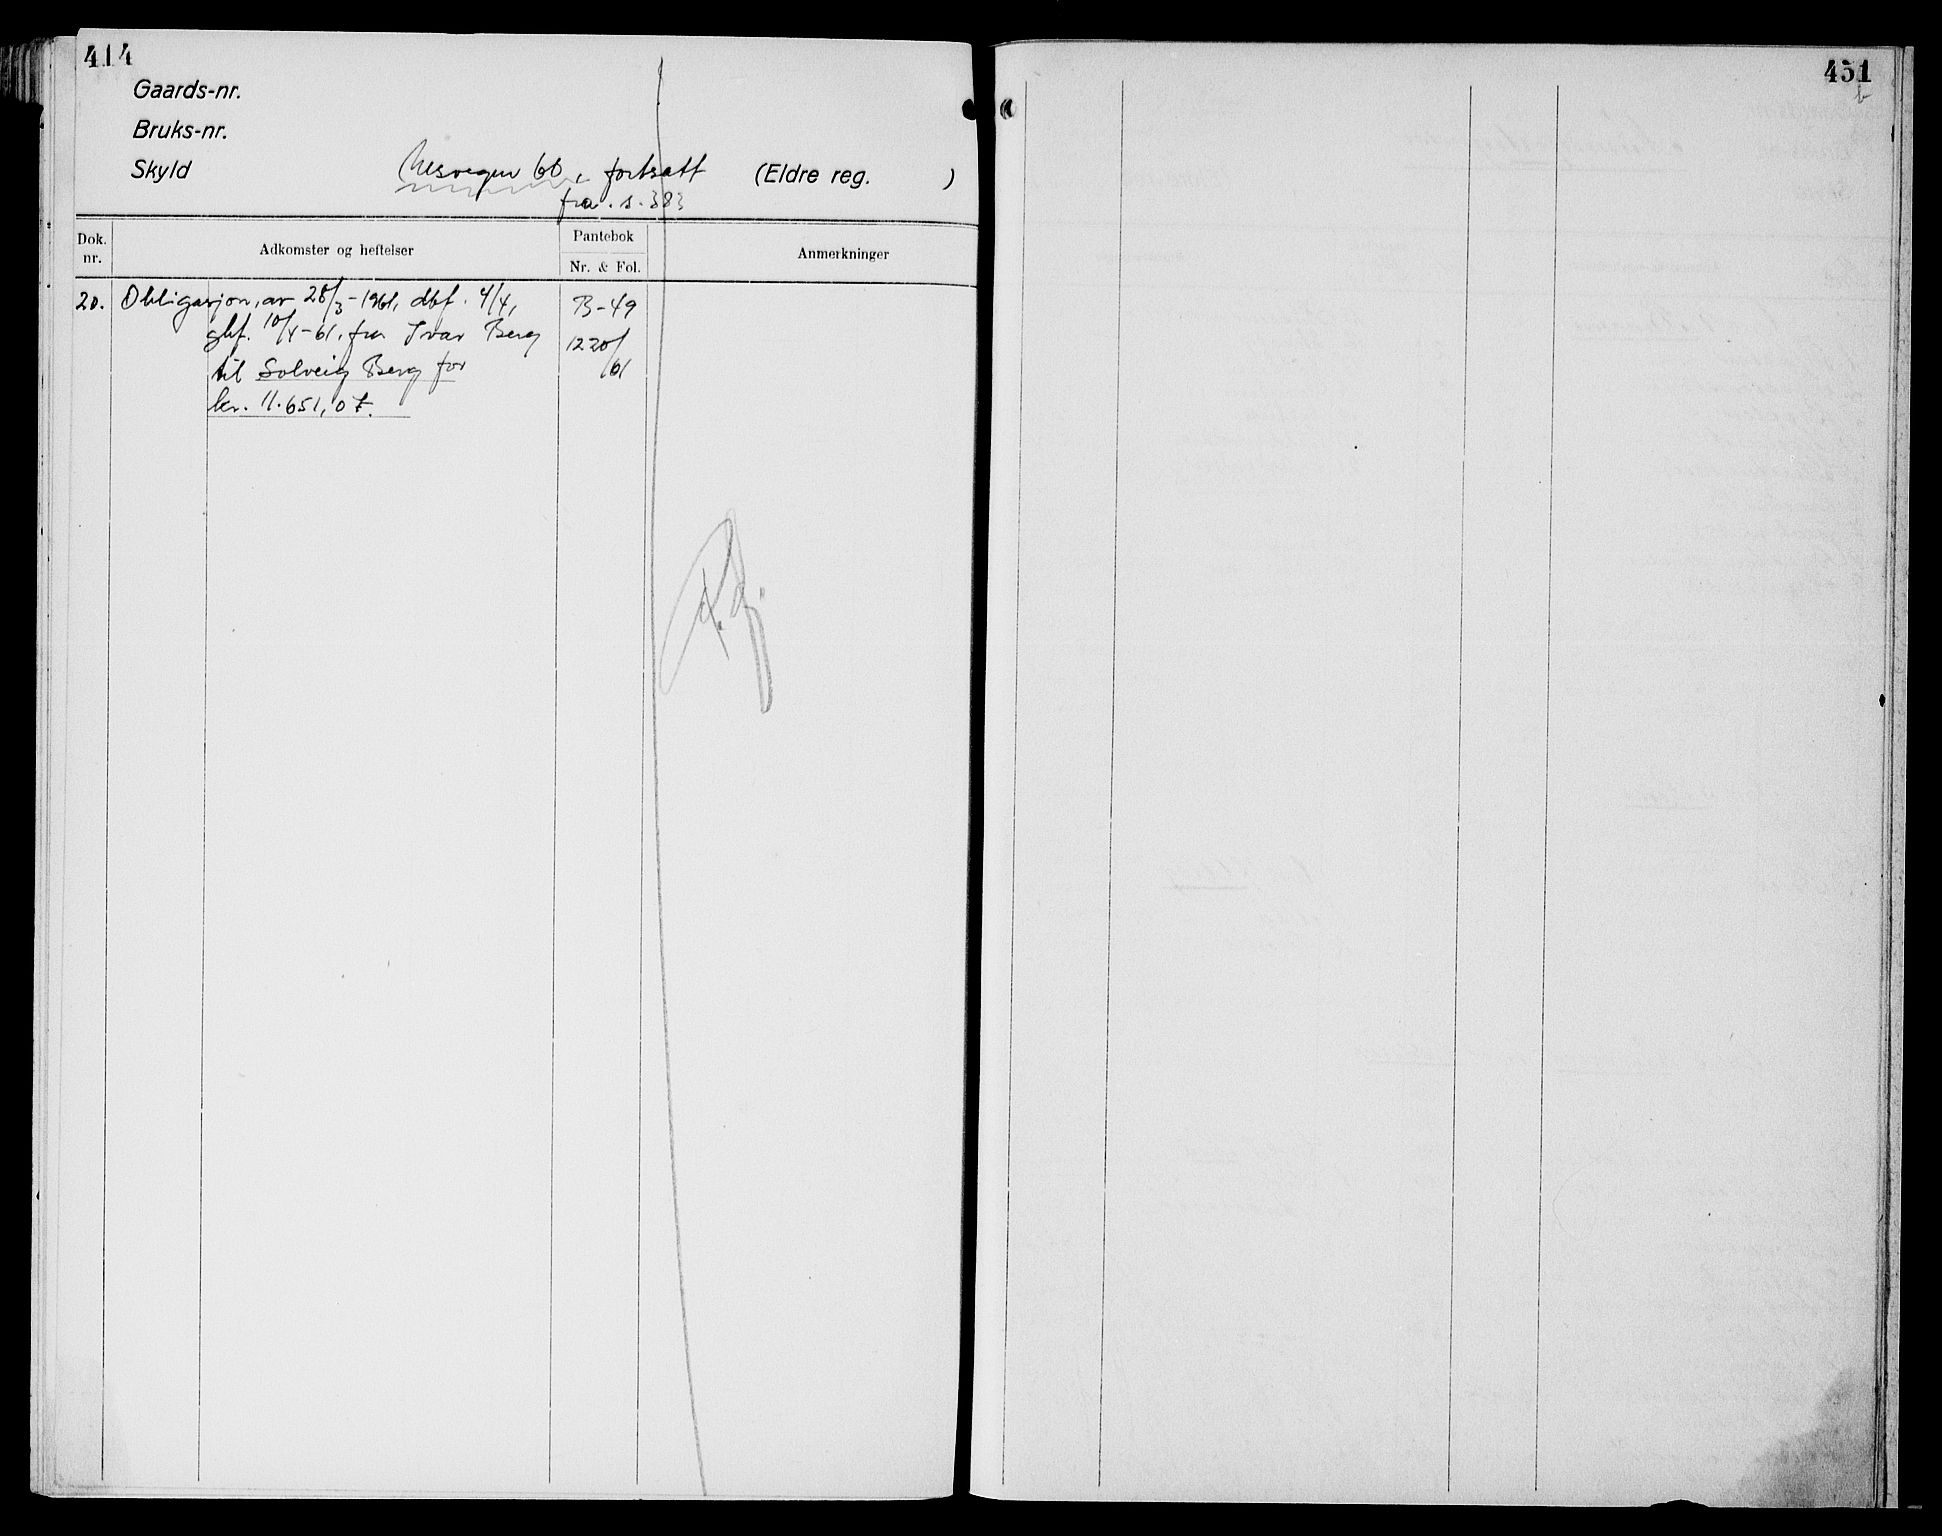 414
Gaards-nr.
Bruks-nr.
Skyld
Nesvegen 66, fortsatt
(Eldre reg. )
fra s. 383
Dok. nr.
Adkomster og heftelser
Pantebok
Nr. & Fol.
Anmerkninger
20. Obligasjon, av 28/3-1961, dbf. 4/4, B-49
gbf. 10/4-61, fra Ivar Berg 1220/
til Solveig Berg for 61
kr. 11.651,07.
451
b